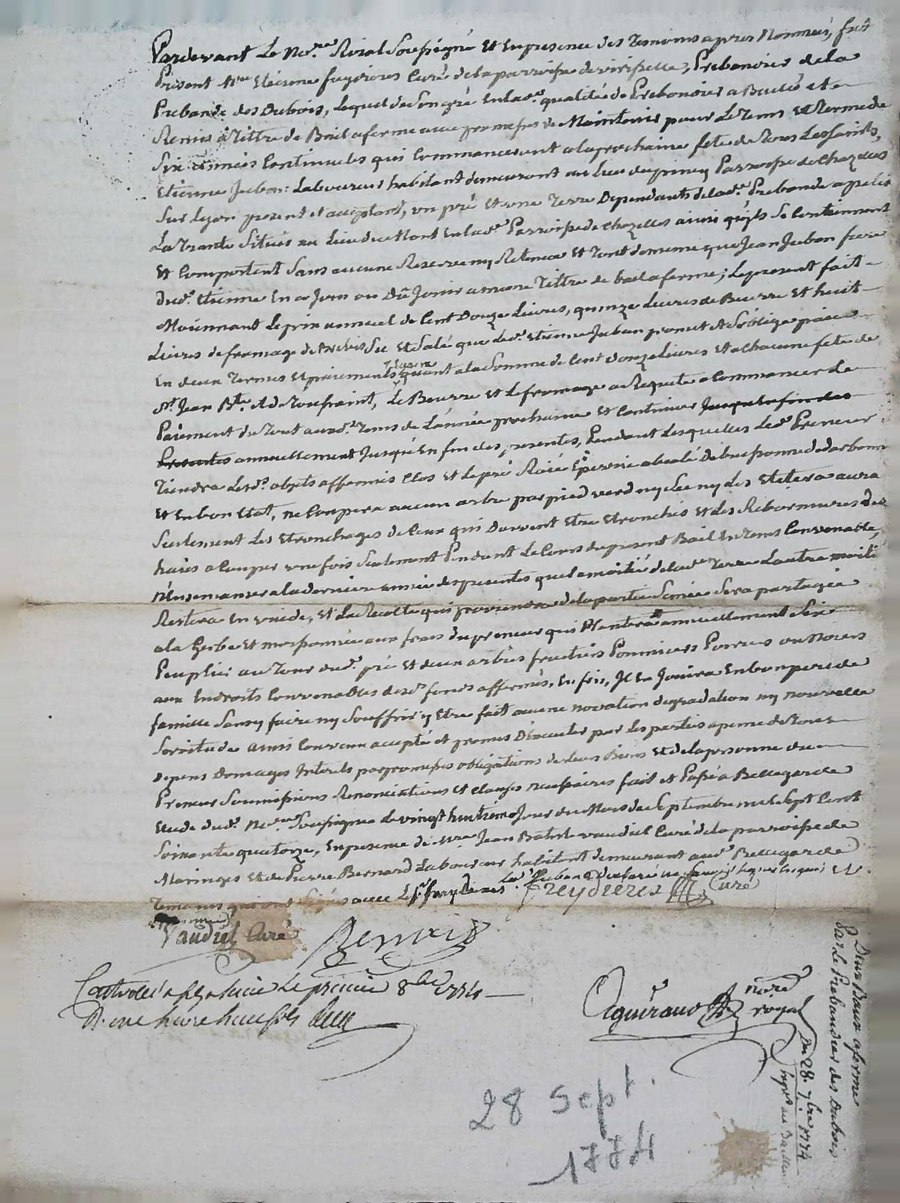 Pardevant Le No.re Roial Soussigné Et En presence des Temoins apres Nommés, fut
Present M.re Etienne Curé de la parroisse de virisselle, Prebandier de la
Prebande des Dubois, Lequel de Son gré En lad.e qualité de Prebandier a Baillé et
Remis a Tittre de Bail a ferme avec promesses de Maintenir pour Le Tems Et Terme de
Six années Continuelles qui Commanceront a la prochaine fête de Tous Les Saints,
Etienne Jubon Laboureur habitant demeurant au Lieu de Parroisse de Chazelles
Sur Lyon present et acceptant, un pré Et une Terre Dependants de lad.e Prebande apellés
La Situés au Lieu du Mont En lad.e Parroisse de Chazelles ainsi qu'ils Se Contiennent
Et Comportent Sans aucune Reserve ny Retenue Et Tout de meme que Jean Jubon frere
dud.t Etienne En a Joui ou Dû Jouir a meme Tittre de bail a ferme; Le present fait
Moiennant Le prix annuel de Cent Douze Livres, quinze Livres de Beurre Et huit
Livres de fromage de Brebis Sec Et Salé que led.t Etienne Jubon promet Et S'oblige paier
En deux Termes Et paiements Egaux quant a la Somme de Cent douze Livres Et a Chacune fête de
S.t Jean B.te Et de Toussaint, Le Beurre Et Le fromage a Requete a Commancer Le
Paiement du Tout auxd.ts Tems de L'année prochaine Et Continuer Jusqu'a la fin des
Presentes annuellement Jusqu'En fin des presentes, Pendant Lesquelles Led.t Preneur
Tiendra Lesd.ts objets affermés Clos Et Le pré
Et En bon Etat, ne Coupera aucun arbre par pied verd ny Sec ny des Etetera aura
Seulement Les Etronchages de Ceux qui Doivent Etre Etronchés Et des des
haies a Couper une fois Seulement Pendant Le Cours du present Bail En tems Convenable,
N'Ensemancera la derniere année des presentes que La moitié de lad.e Terre L'autre moitié
Restera En vuide, Et La Recolte qui proviendra de la partie Semée Sera partagée
a la Gerbe Et moissonnée aux frais du preneur qui Plantera annuellement Six
Peupliers au Tour dud.t pré Et deux arbres fruitiers Pommiers Poiriers ou Noiers
aux Endroits Convenables desd.ts fonds affermés, En fin, Il En Jouira En bon pere de
famille Sans y faire ny Souffrir y Etre fait aucune novation degradation ny nouvelle
Servitude ainsi Convenu accepté et promis D'executer par Les parties a peine de Tous
Depens Domages Interets par promesses obligations de Leurs Biens Et de la personne du
Preneur Soumissions Renonciations et Clauses necessaires fait Et Passé a Bellegarde
Etude dud.t No.re Soussigné Le vingt huitieme Jour du Mois de Septembre mil Sept Cent
Soixante quatorze, En presence de M.re Jean Vaudiel Curé de la parroisse de
Maringes Et de Pierre Bernard Laboureur habitant demeurant aud.t Bellegarde
Temoins qui ont Signés avec Led.t S.r Led.t Jubon a Declaré ne Savoir Signer de ce Enquis Et
Sommé
Freydieres Curé
Vaudiel Curé
Bernard
Controllé a Le premier 8bre 1774
R. une livre huit sols
Aguiraud
no.re
royal
Deux Baux a ferme
Par Le Prebandier des Dubois
Du 28. 7bre 1774
28 Sept.
1774